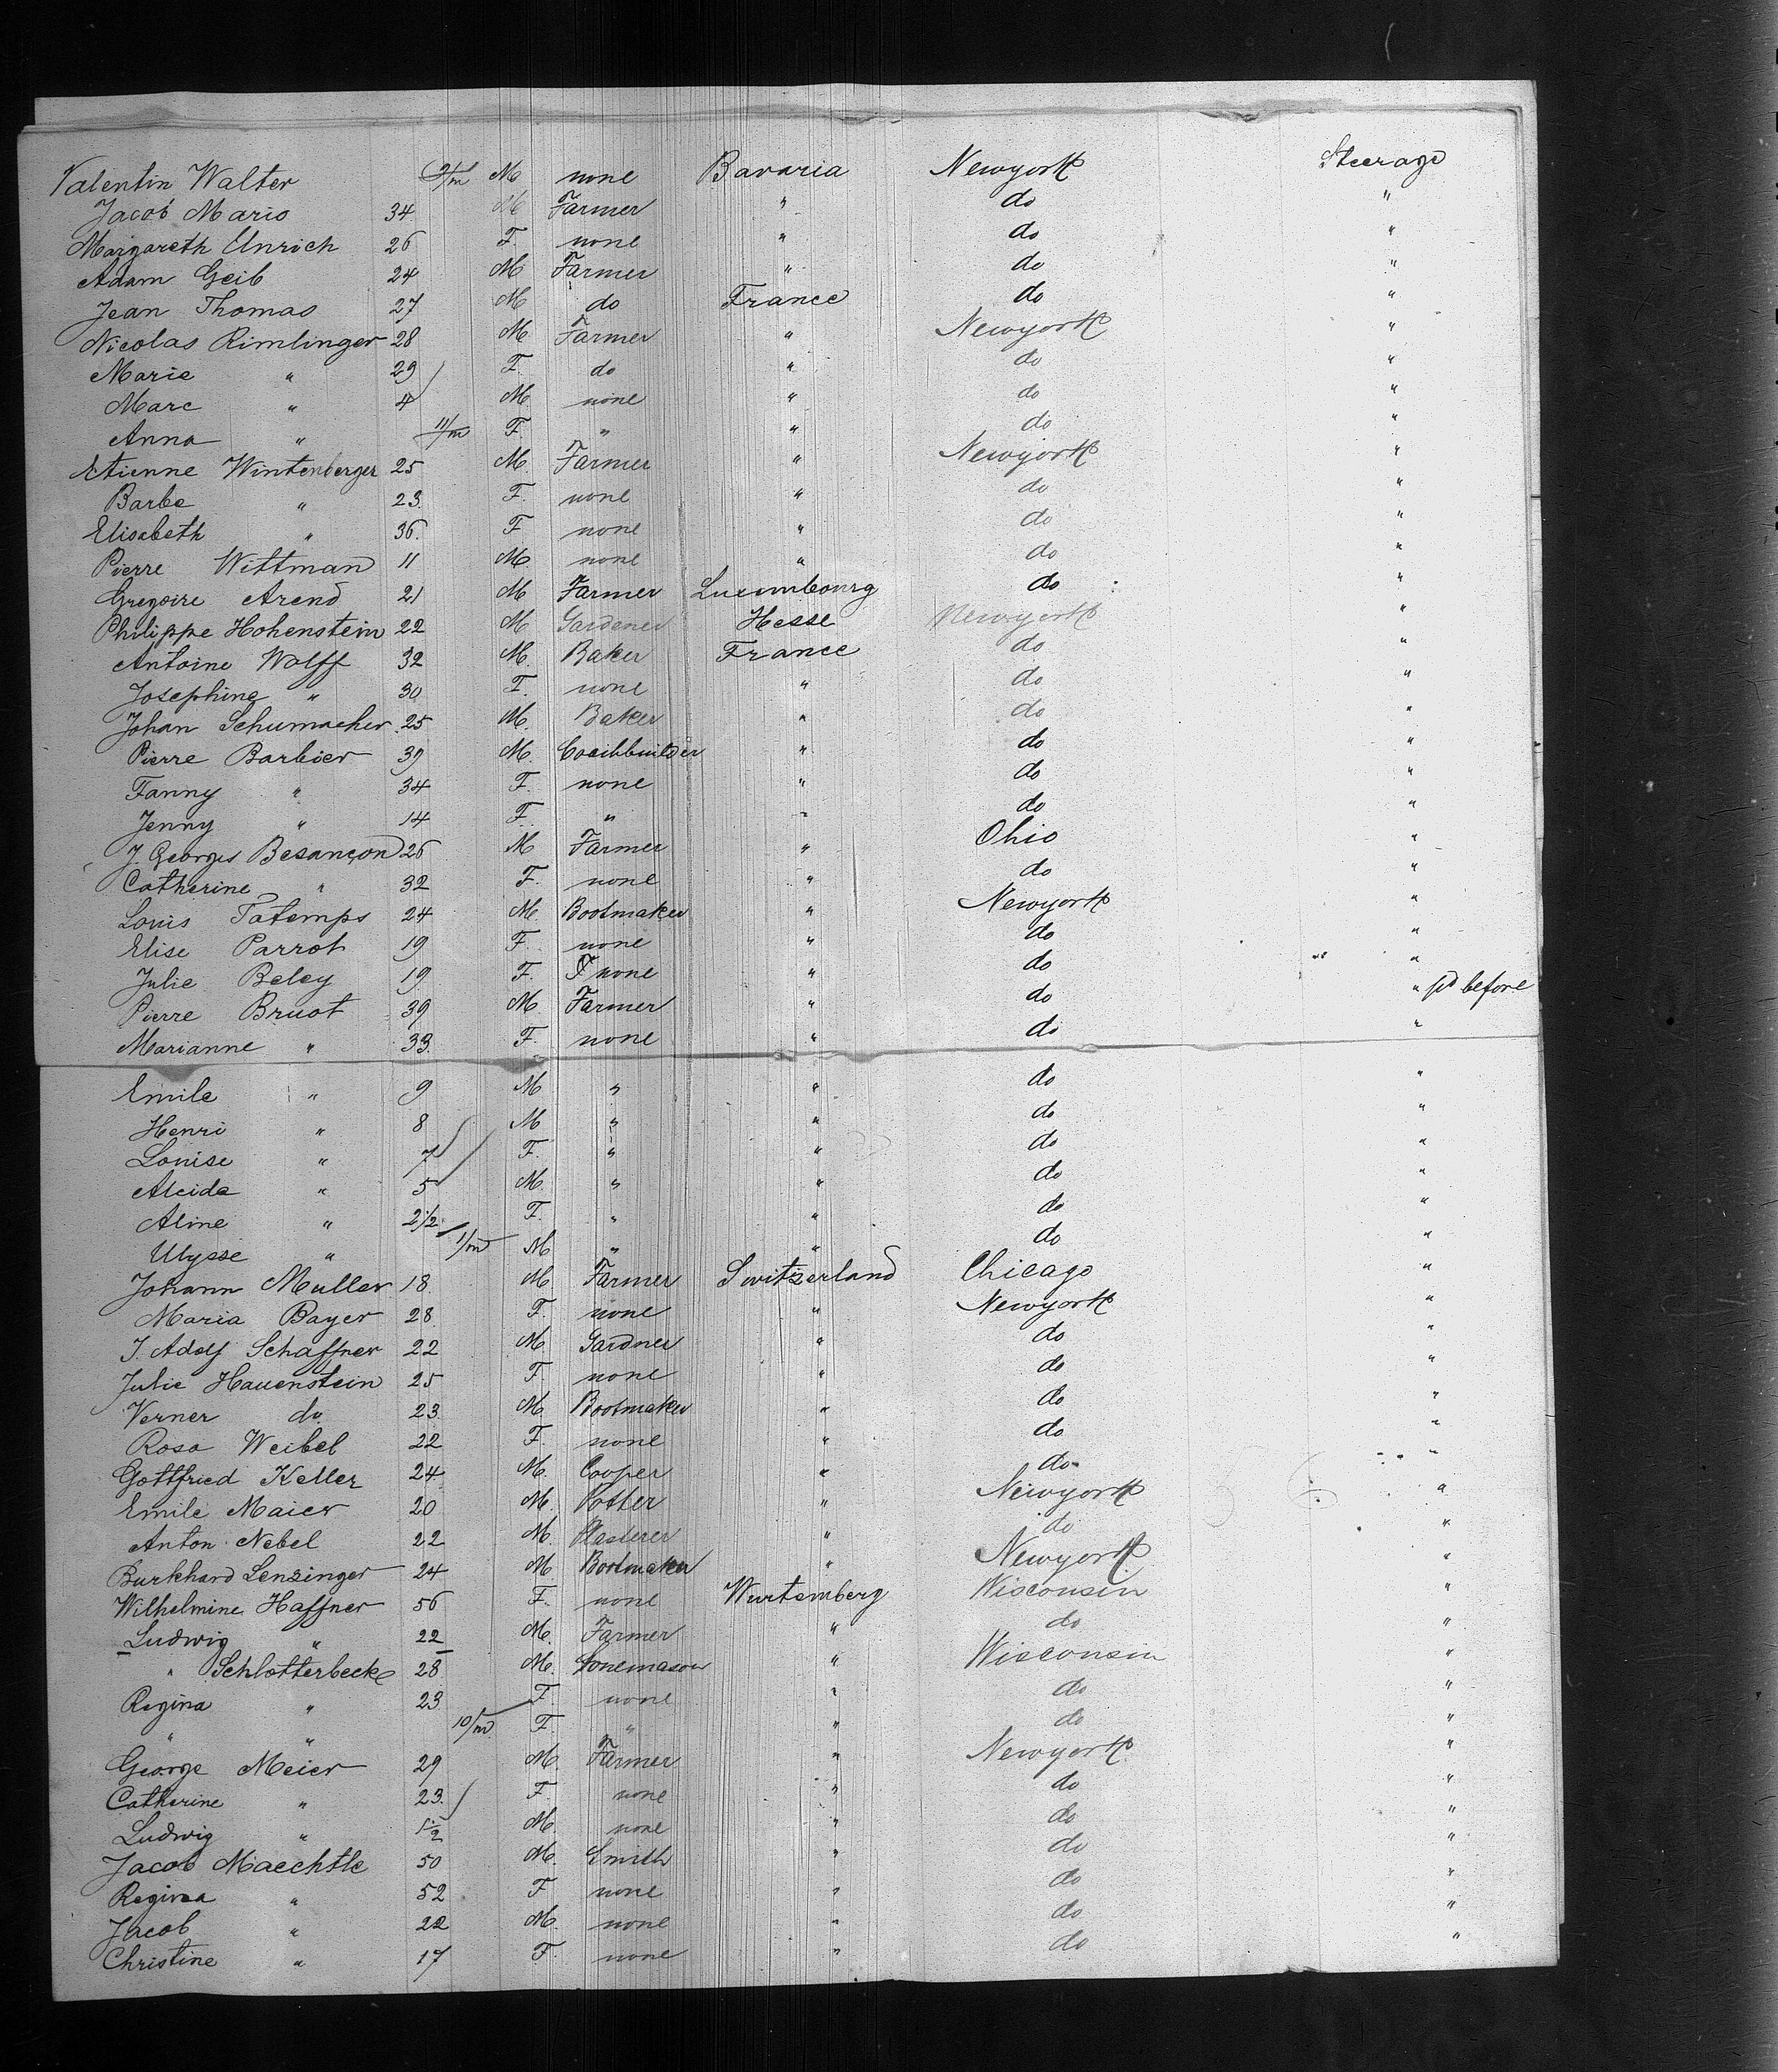 Valentin Walter 9/m M none Bavaria Newyork Steerage
Jacob Mario 34 M Farmer " do "
Margareth Unrich 26 F. none " do "
Adam Geib 24 M Farmer " do "
Jean Thomas 27 M do France do "
Nicolas Rimlinger 28 M Farmer " Newyork "
Marie " 29 F. do " do "
Marc " 4 M none " do "
Anna " 11/m F. " " do "
Etienne Wintenberger 25 M. Farmer " Newyork "
Barbe " 23. F. none " do "
Elisabeth " 36. F none " do "
Pierre Wittman 11 M none " do "
Gregoire Arend 21 M Farmer Luxembourg do "
Philippe Hohenstein 22 M Gardener Hesse Newyork "
Antoine Wolff 32 M. Baker France do "
Josephine " 30 F. none " do "
Johan Schumacher 25 M. Baker " do "
Pierre Barbier 39 M. Coachbuilder " do "
Fanny " 34 F. none " do "
Jenny " 14 F. " " do "
J. Georges Besançon 26 M Farmer " Ohio "
Catherine " 32 F. none " do "
Louis Fatemps 24 M. Bootmaker " Newyork "
Elise Parrot 19 F. none " do "
Julie Beley 19 F. F none " do "
Pierre Bruot 39 M Farmer " do " before
Marianne " 33. F. none " do "
Emile " 9 M " " do "
Henri " 8 M " " do "
Louise " 7 F. " " do "
Alcida " 5 M. " " do "
Aline " 2 1/2 F. " " do "
Ulysse " 1/m M " " do "
Johann Muller 18 M Farmer Switzerland Chicago "
Maria Bayer 28. F. none " Newyork "
J. Adolf Schaffner 22 M. Gardner " do "
Julie Hauenstein 25 F none " do "
Verner do 23 M. Bootmaker " do "
Rosa Weibel 22 F. none " do "
Gottfried Keller 24 M. Cooper " do "
Emile Maier 20 M. Potter " Newyork "
Anton Nebel 22 M. Plasterer " do "
Burkhard Lenzinger 24 M. Bootmaker " Newyork "
Wilhelmine Haffner 56 F. none Wurtemberg Wisconsin "
Ludwig " 22 M. Farmer " do "
" Schlotterbeck 28 M. Stonemason " Wisconsin "
Regina " 23 F. none " do "
" " 10/m F. " " do "
George Meier 29 M. Farmer " Newyork "
Catherine " 23. F. none " do "
Ludwig " 1/2 M. none " do "
Jacob Maechtle 50 M. Smith " do "
Regina " 52 F none " do "
Jacob " 22 M. none " do "
Christine " 17 F. none " do "